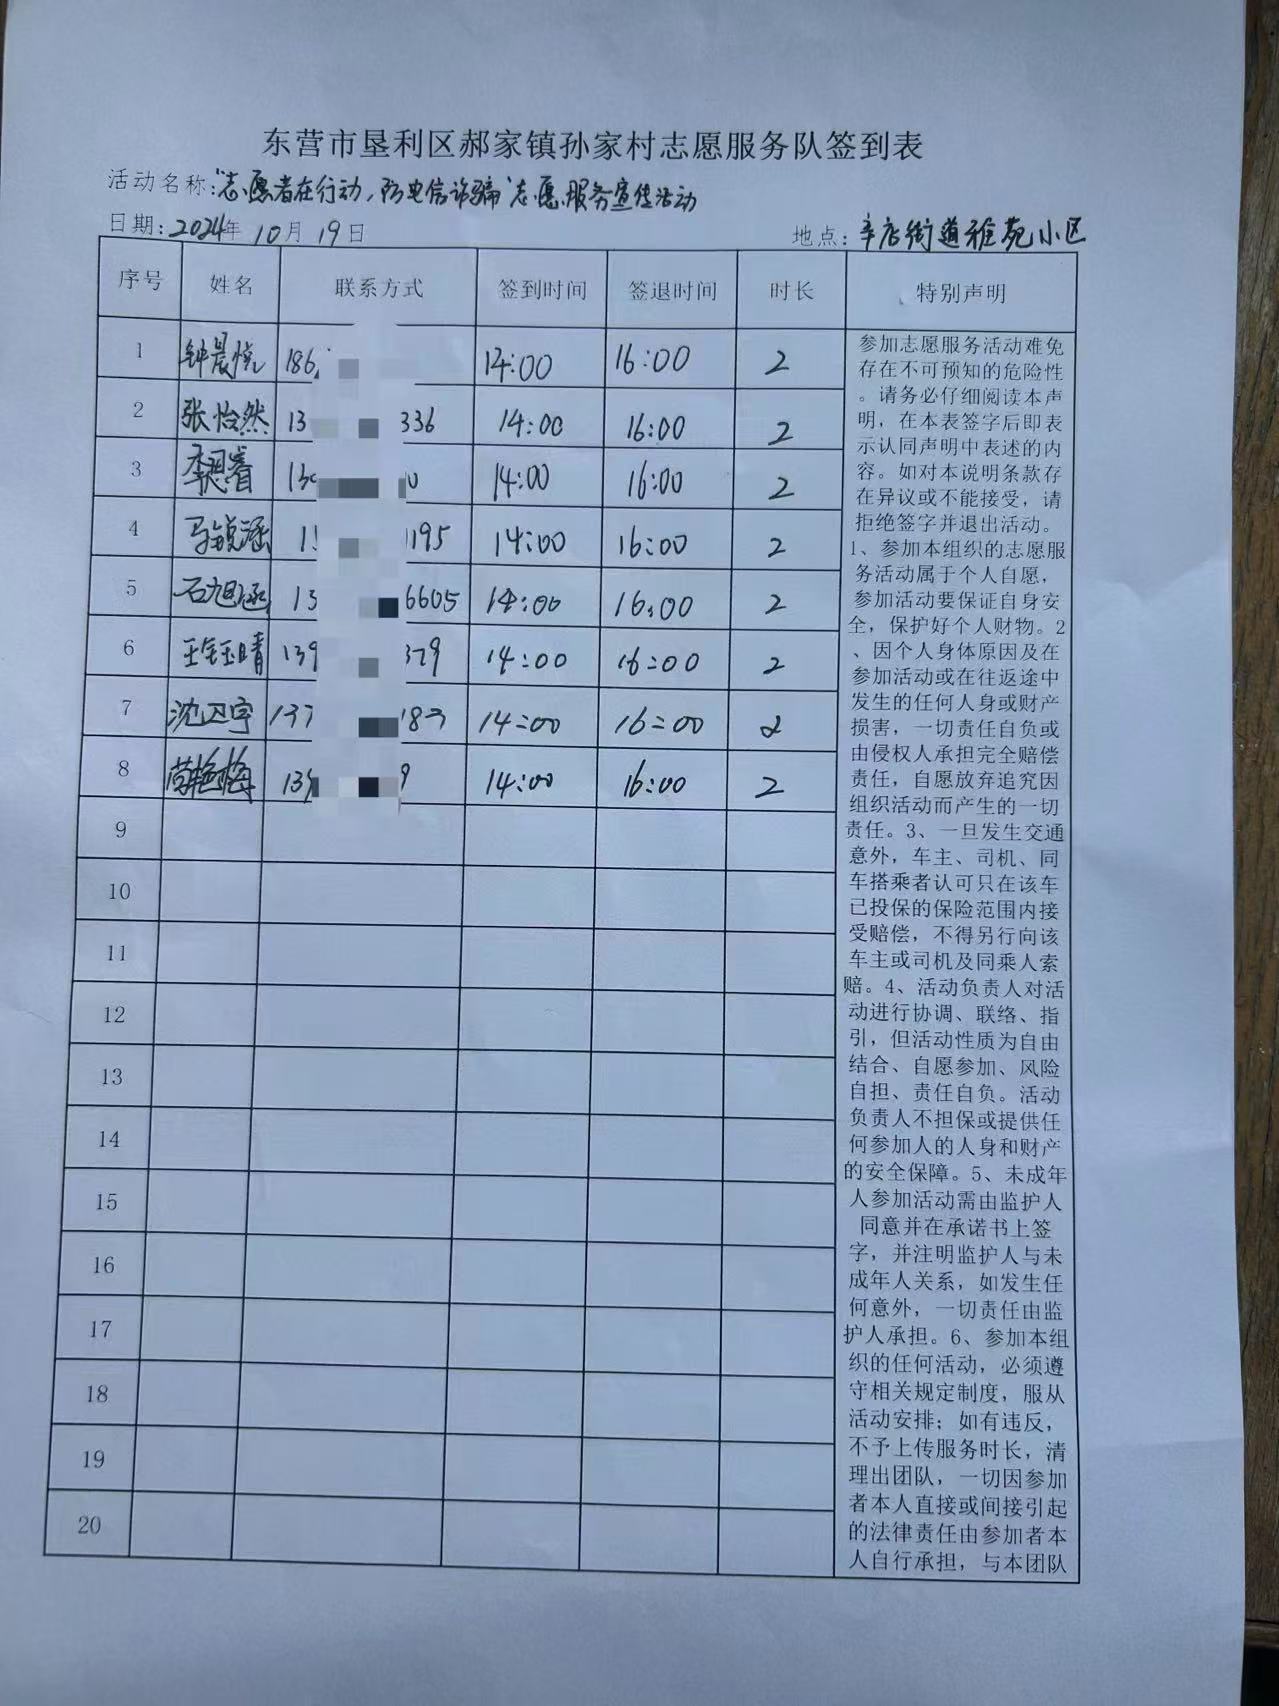 东营市垦利区郝家镇孙家村志愿服务队签到表
活动名称：“志愿者在行动，防电信诈骗”志愿服务宣传活动
日期：2024年10月19日
地点：辛店街道雅苑小区
序号 姓名 联系方式 签到时间 签退时间 时长 特别声明
1 钟晨悦 186 14:00 16:00 2
2 张怡然 13 336 14:00 16:00 2
3 14:00 16:00 2
4 马锐涵 1195 14:00 16:00 2
5 石旭涵 13 6605 14:00 16:00 2
6 王钰晴 139 379 14:00 16:00 2
7 137 183 14:00 16:00 2
8 139 9 14:00 16:00 2
9
10
11
12
13
14
15
16
17
18
19
20
参加志愿服务活动难免
存在不可预知的危险性
。请务必仔细阅读本声
明，在本表签字后即表
示认同声明中表述的内
容。如对本说明条款存
在异议或不能接受，请
拒绝签字并退出活动。
1、参加本组织的志愿服
务活动属于个人自愿，
参加活动要保证自身安
全，保护好个人财物。2
、因个人身体原因及在
参加活动或在往返途中
发生的任何人身或财产
损害，一切责任自负或
由侵权人承担完全赔偿
责任，自愿放弃追究因
组织活动而产生的一切
责任。3、一旦发生交通
意外，车主、司机、同
车搭乘者认可只在该车
已投保的保险范围内接
受赔偿，不得另行向该
车主或司机及同乘人索
赔。4、活动负责人对活
动进行协调、联络、指
引，但活动性质为自由
结合、自愿参加、风险
自担、责任自负。活动
负责人不担保或提供任
何参加人的人身和财产
的安全保障。5、未成年
人参加活动需由监护人
同意并在承诺书上签
字，并注明监护人与未
成年人关系，如发生任
何意外，一切责任由监
护人承担。6、参加本组
织的任何活动，必须遵
守相关规定制度，服从
活动安排；如有违反，
不予上传服务时长，清
理出团队，一切因参加
者本人直接或间接引起
的法律责任由参加者本
人自行承担，与本团队